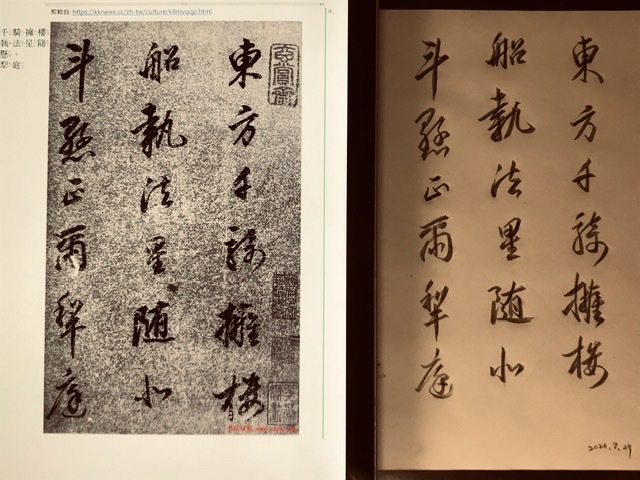 剪輯自: https://kknews.cc/zh-tw/culture/k8mvqqp.html
千騎擁樓
執法星隨
懸。
犁庭
東方千騎擁樓
船執法星随北
斗懸正爾犁庭
東方千騎擁樓
船執法星随北
斗懸正爾犁庭
2020.7.29